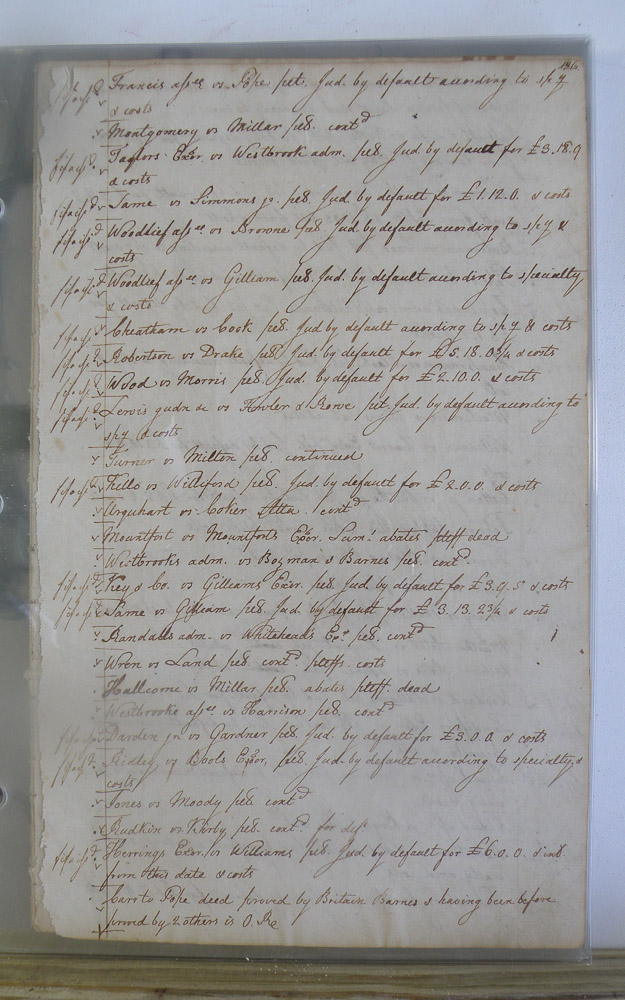 136
Francis assee vs Pope pet. Jud. by default according to spy
& costs
Montgomery vs Millar pet. contd
Taylors Exor. vs Westbrook adm. pet. Jud by default for £3.18.9
& costs
Same vs Simmons jr. pet. Jud. by default for £1.12.0. & costs
Woodlief assee vs Browne pet Jud. by default according to spy &
costs
Woodlief assee vs Gilliam pet. Jud. by default according to specialty
& costs
Cheatham vs Cook pet. Jud by default according to spy & costs
Robertson vs Drake pet. Jud. by default for £5.18.0¾ & costs
Wood vs Morris pet. Jud. by default for £2.10.0. & costs
Lewis gudn &c vs Fowler & Rowe pet. Jud. by default according to
spy & costs
Turner vs Milton pet continued
Kello vs Williford pet. Jud. by default for £2.0.0. & costs
Urquhart vs Coker Atta. contd
Mountfort vs Mountforts Exor. Sums. abates pteff dead
Westbrooks adm. vs Bozman & Barnes pet. contd.
Key & Co. vs Gilliams Exor. pet. Jud by default for £3.9.5 & costs
Same vs Gilliam pet. Jud. by default for £3.13.2¾ & costs
Randalls adm. vs Whiteheads Exr. pet. contd
Wren vs Land pet. contd. pteffs. costs
Hallcome vs Millar pet. abates pteff. dead
Westbrooke assee vs Harrison pet. contd
Darden jr vs Gardner pet. Jud. by default for £3.0.0. & costs
Ridley vs Booths Exor. pet. Jud. by default according to specialty &
costs
Jones vs Moody pet contd
Rudkin vs Kirby pet. contd. for def.
Herrings Exor. vs Williams pet. Jud. by default for £6.0.0. & int.
from this date & costs
Carr to Pope deed proved by Britain Barnes & having been before
proved by 2 others is O. Re